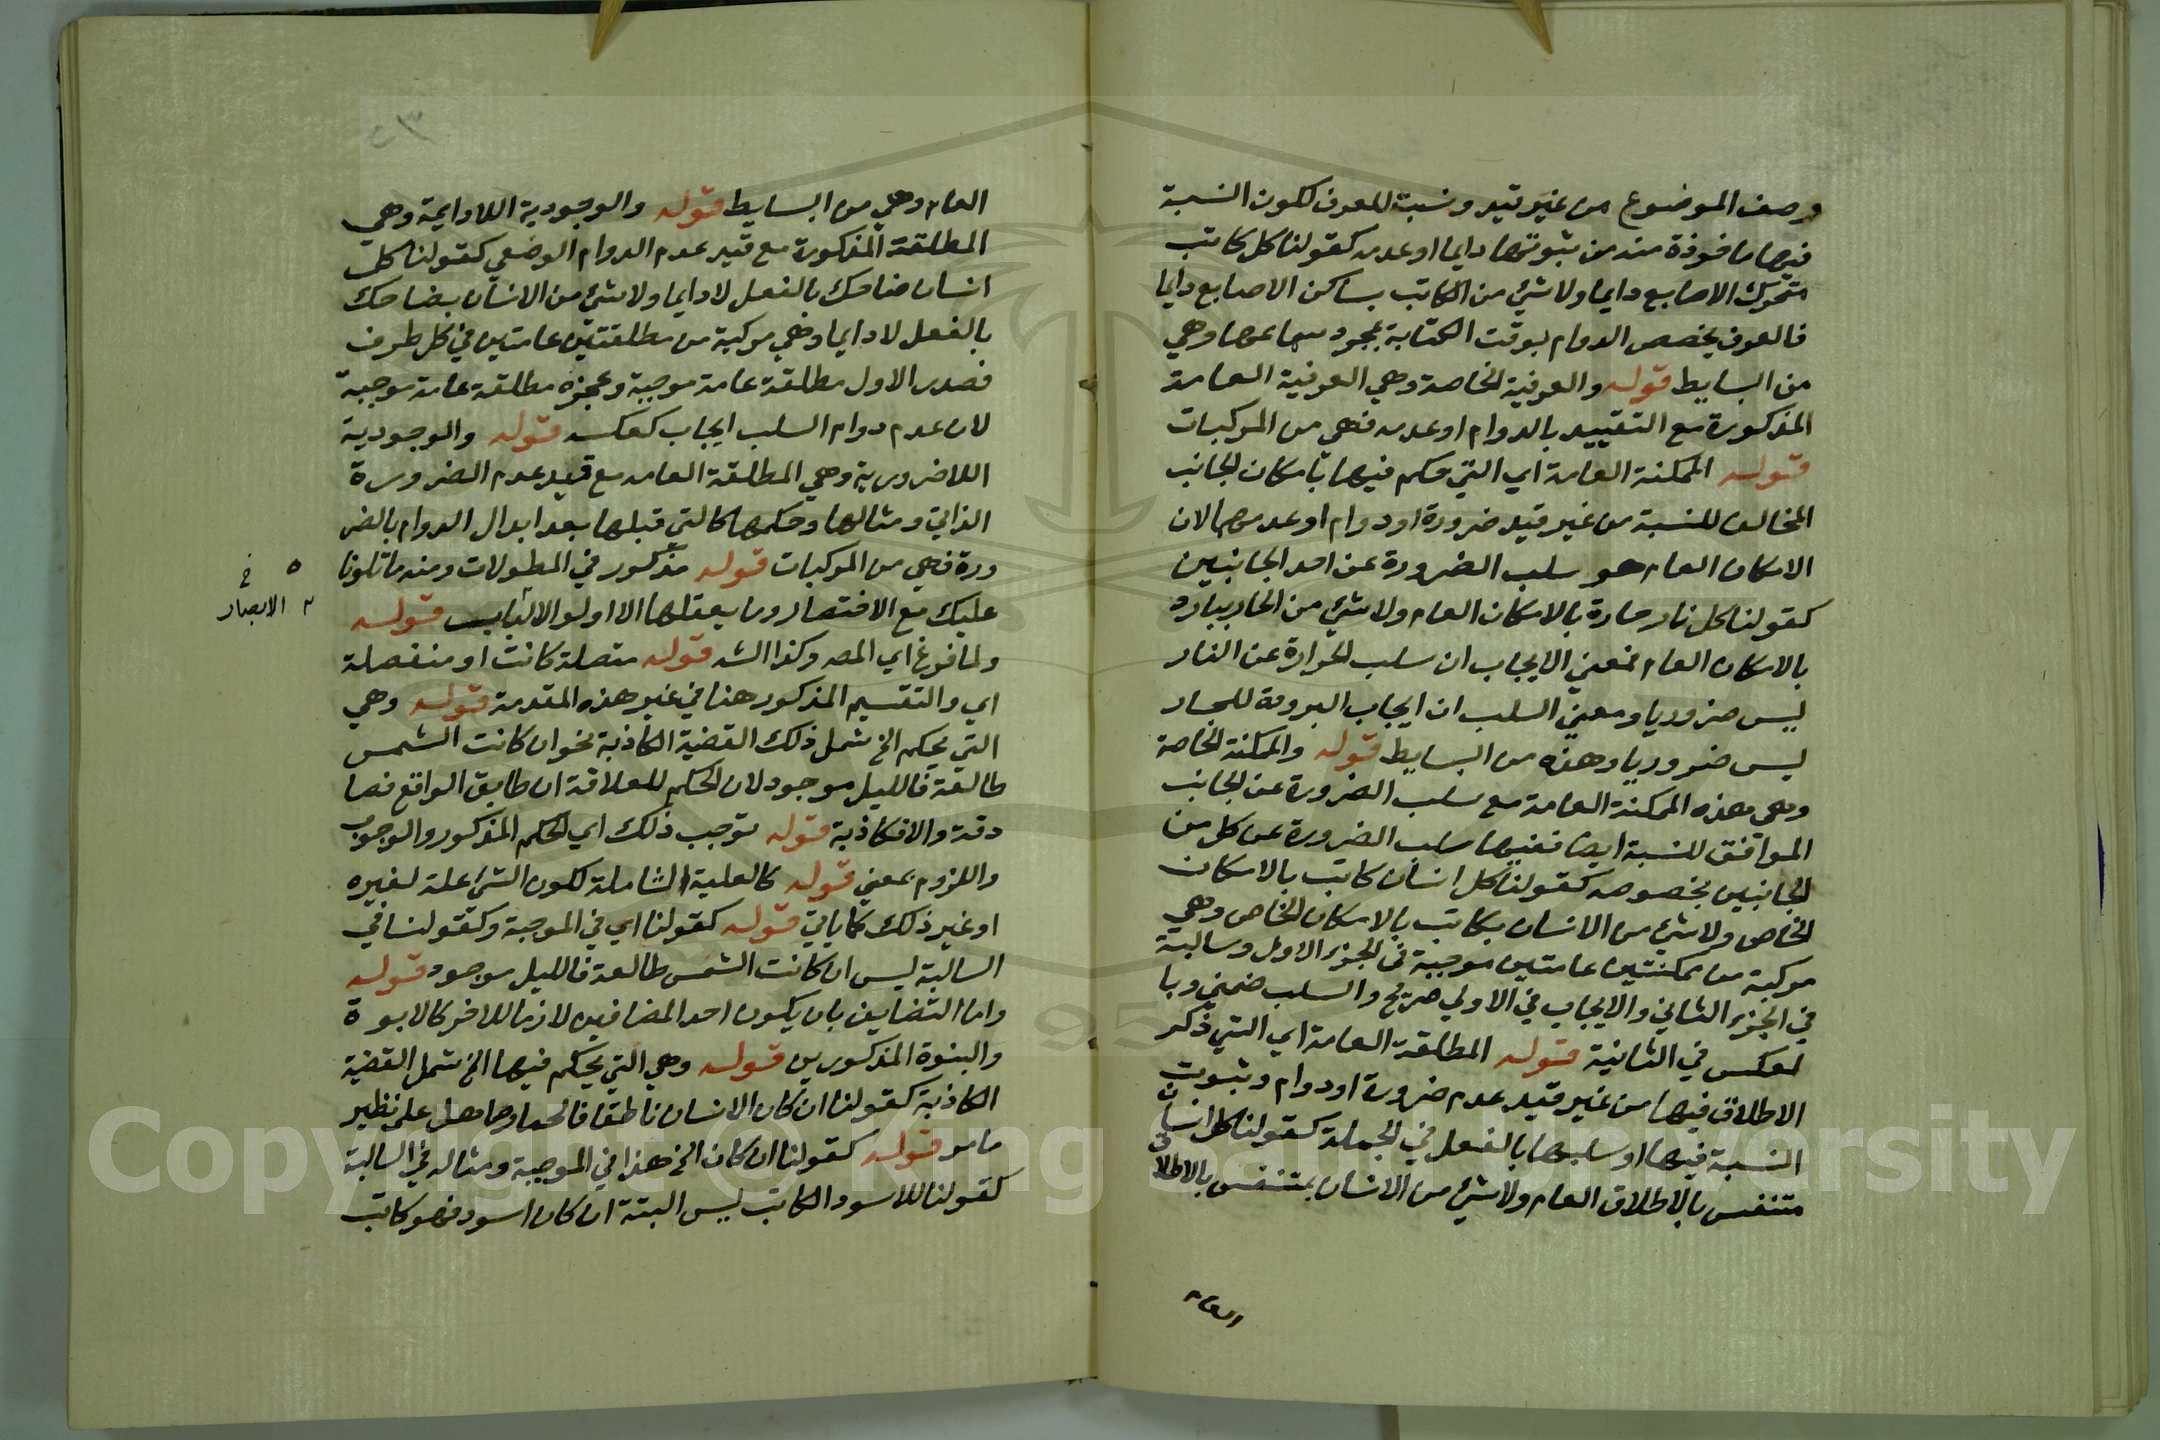 وصف الموضوع من غير قيد ونسبة للعرف لكون النسبة
فيها ماخوذة منه من ثبوتها دايما او عدمه كقولنا كل كاتب
متحرك الاصابع دايما ولا شي من الكاتب بساكن الاصابع دايما
فالعرف يخصص الدوام بوقت الكتابة بمجرد سماعها وهي
من البسايط قوله والعرفية الخاصة وهي العرفية العامة
المذكورة مع التقييد بالدوام او عدمه فهي من المركبات
قوله الممكنة العامة اي التي حكم فيها بامكان الجانب
المخالف للنسبة من غير قيد ضرورة او دوام او عدمهما لان
الامكان العام هو سلب الضرورة عن احد الجانبين
كقولنا كل نار حارة بالامكان العام ولا شي من الحار ببارد
بالامكان العام فمعني الايجاب ان سلب الحرارة عن النار
ليس ضروريا ومعني السلب ان ايجاب البرودة للحار
ليس ضروريا وهذه من البسايط قوله والممكنة الخاصة
وهي هذه الممكنة العامة مع سلب الضرورة عن الجانب
الموافق للنسبة ايضا ففيها سلب الضرورة عن كل من
الجانبين بخصوصه كقولنا كل انسان كاتب بالامكان
الخاص ولا شي من الانسان بكاتب بالامكان الخاص وهي
مركبة من ممكنتين عامتين موجبة في الجزء الاول وسالبة
في الجزء الثاني والايجاب في الاولي صريح والسلب ضمني وبا
لعكس في الثانية قوله المطلقة العامة اي التي ذكر
الاطلاق فيها من غير قيد عدم ضرورة او دوام وثبوت
النسبة فيها او سلبها بالفعل في الجملة كقولنا كل انسان
متنفس بالاطلاق العام ولا شي من الانسان بمتنفس بالاطلاق
العام
٤٣
العام وهي من البسايط قوله والوجودية اللادايمة وهي
المطلقة المذكورة مع قيد عدم الدوام الوضعي كقولنا كل
انسان ضاحك بالفعل لا دايما ولا شي من الانسان بضاحك
بالفعل لا دايما وهي مركبة من مطلقتين عامتين في كل طرف
فصدر الاول مطلقة عامة موجبة وعجزه مطلقة عامة موجبة
لان عدم دوام السلب ايجاب كعكسه قوله والوجودية
اللاضرورية وهي المطلقة العامه مع قيد عدم الضرورة
الذاتي ومثالها وحكمها كالتي قبلها بعد ابدال الدوام بالضر
ورة فهي من المركبات قوله مذكور في المطولات ومنه ما تلونا
عليك مع الاختصار وما يعقلها الا اولو الالباب قوله
٥ خ
٢ الابصار
ولما فرغ اي المصـ وكذا الشـ قوله متصلة كانت او منفصلة
اي والتقسيم المذكور هنا في غير هذه المقدمة قوله وهي
التي يحكم الخ شمل ذلك القضية الكاذبة نحو ان كانت الشمس
طالعة فالليل موجود لان الحكم للعلاقة ان طابق الواقع فصا
دقة والا فكاذبة قوله توجب ذلك اي الحكم المذكور والوجوب
واللزوم بمعني قوله كالعلية الشاملة لكون الشي علة لغيره
او غير ذلك كما ياتي قوله كقولنا اي في الموجبة وكقولنا في
السالبة ليس ان كانت الشمس طالعة فالليل موجود قوله
واما التضايف بان يكون احد المضافين لازما للاخر كالابوة
والبنوة المذكورين قوله وهي التي يحكم فيها الخ شمل القضية
الكاذبة كقولنا ان كان الانسان ناطقا فالحمار صاهل علي نظير
ما مر قوله كقولنا ان كان الخ هذا في الموجبة ومثاله في السالبة
كقولنا للاسود الكاتب ليس البتة ان كان اسود فهو كاتب